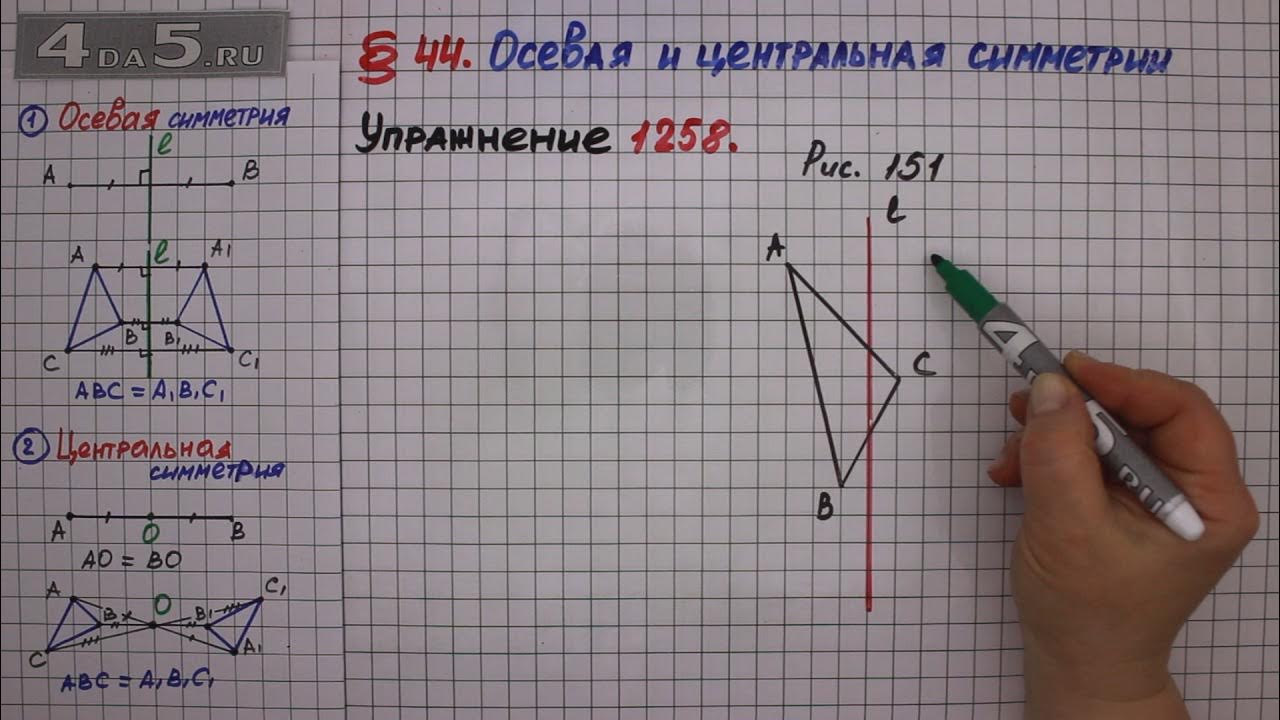 4DA5.RU
§ 44. Осевая и центральная симметрии
① Осевая симметрия
l
A B
l
A A₁
B B₁
C C₁
ABC = A₁B₁C₁
② Центральная
симметрия
A O B
AO = BO
A B O B₁ C₁
C A₁
ABC = A₁B₁C₁
Упражнение 1258.
Рис. 151
l
A
C
B